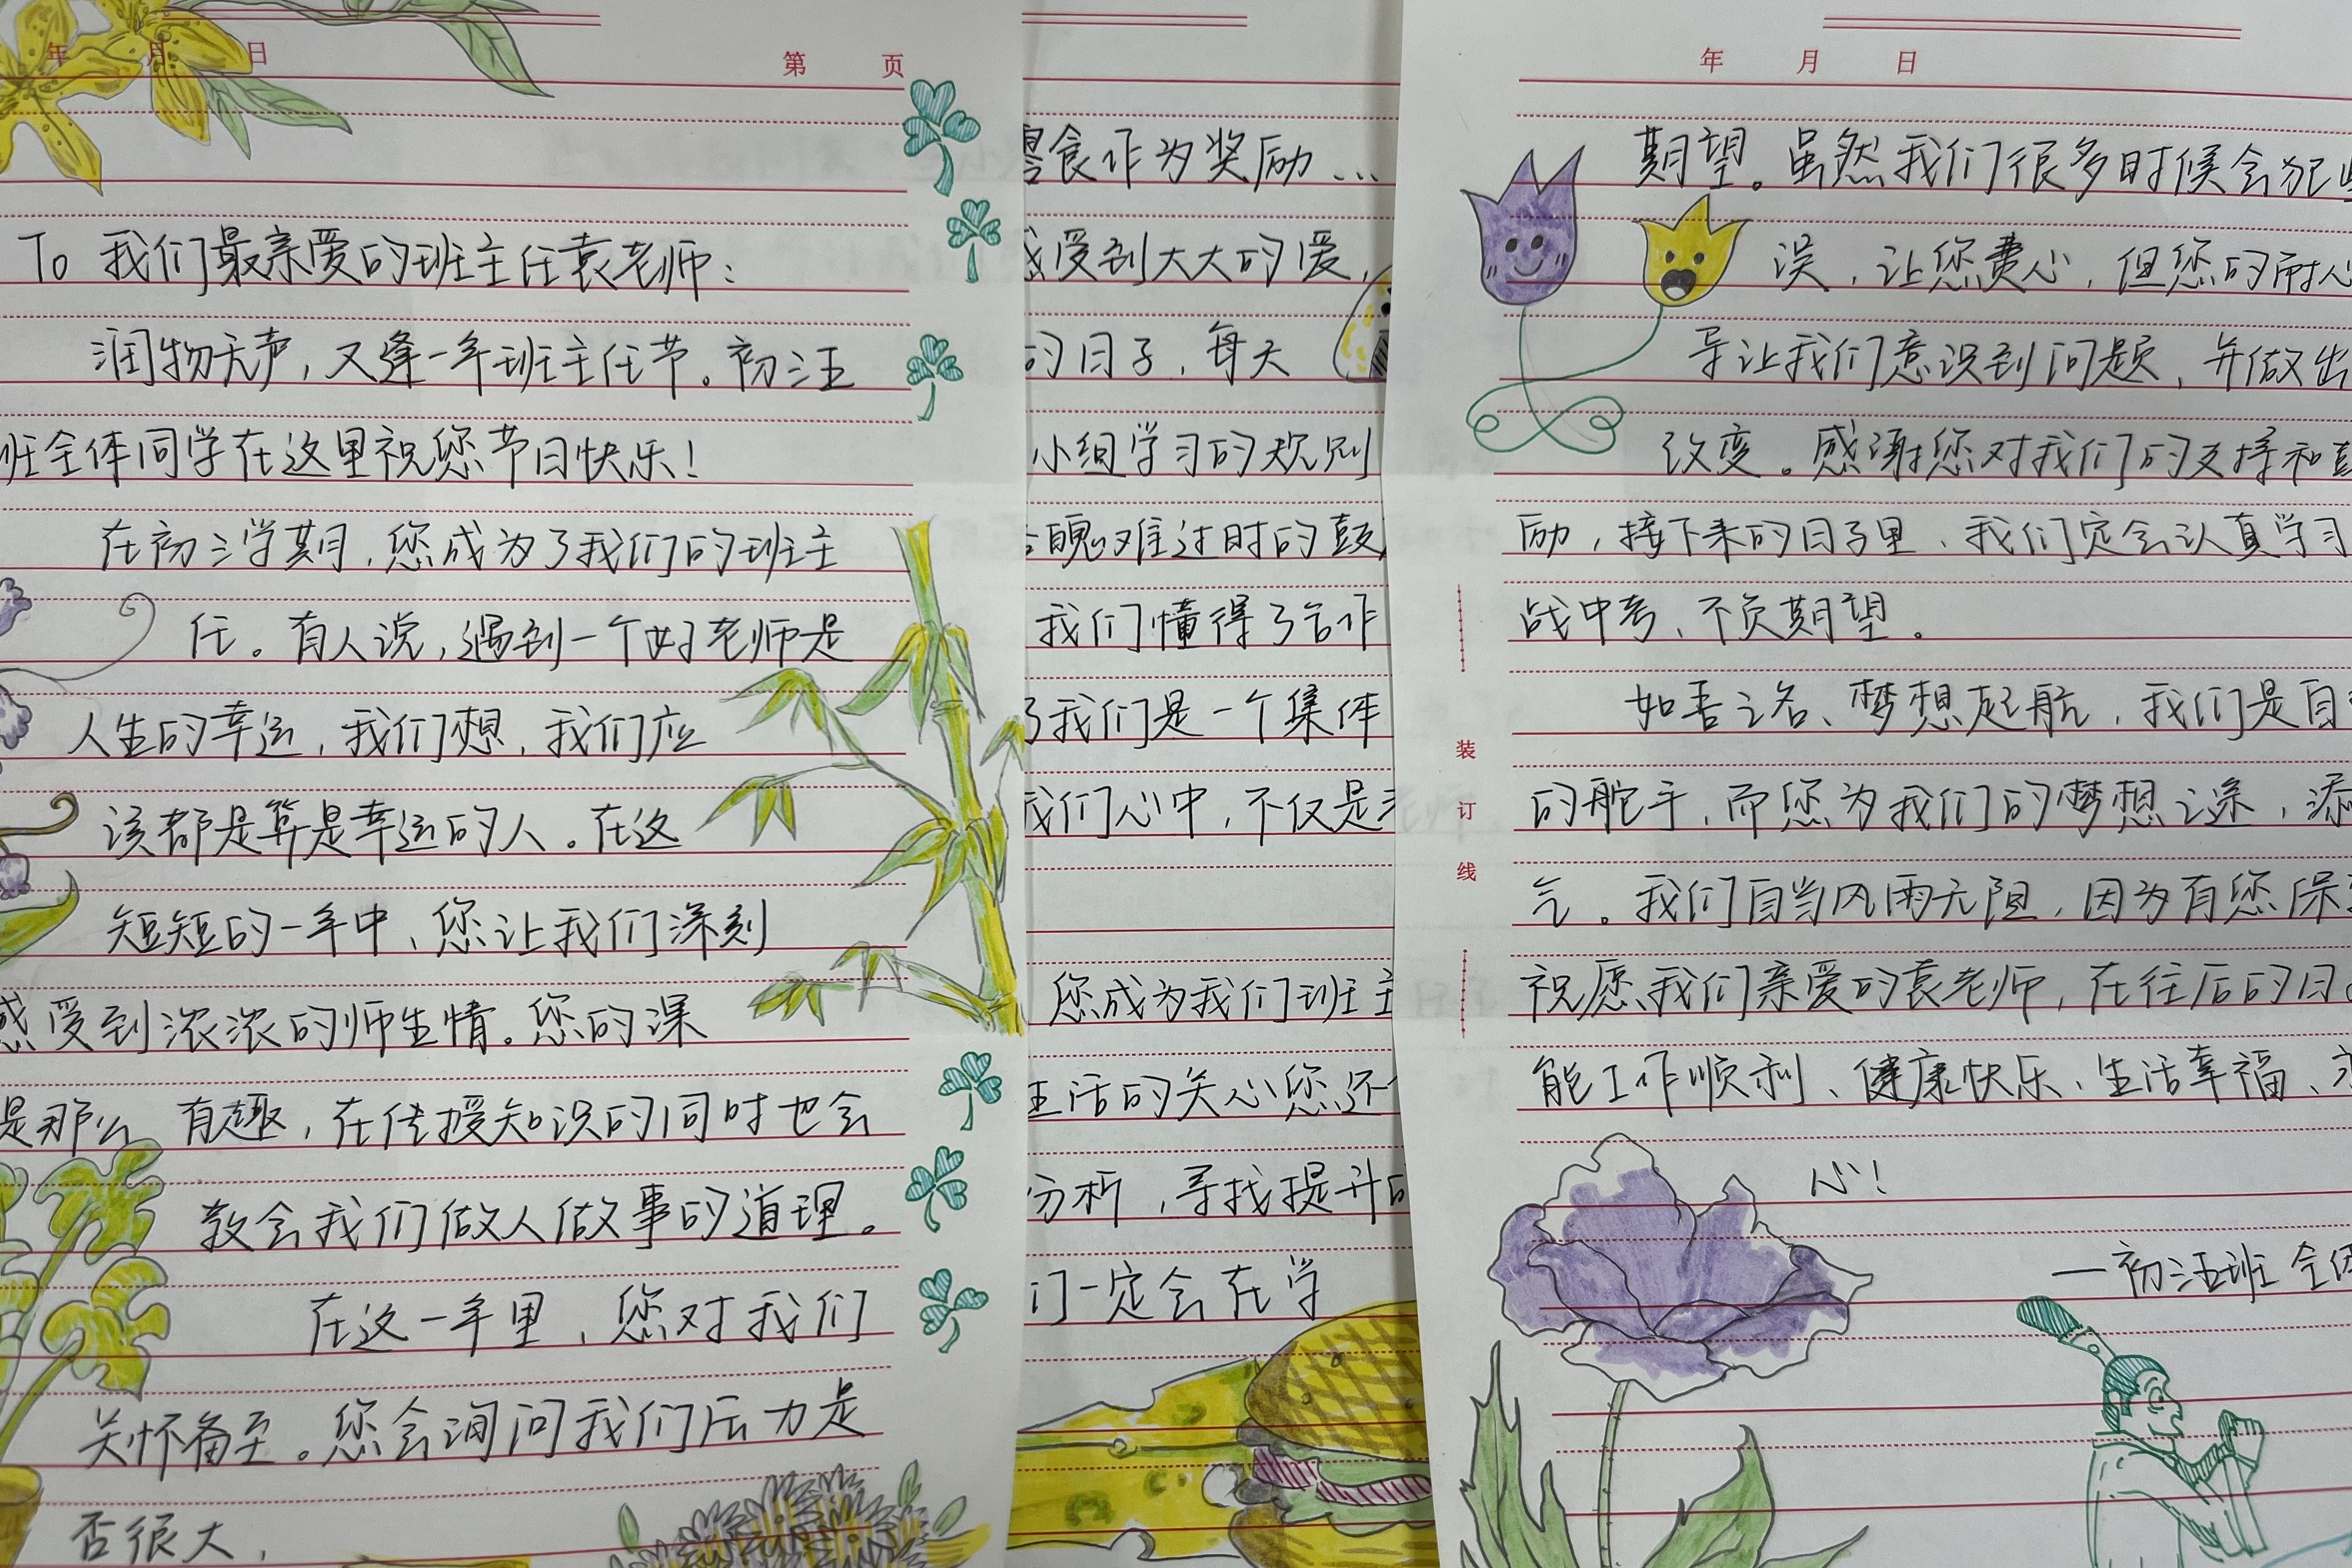 年 月 日
第 页
To 我们最亲爱的班主任袁老师：
润物无声，又逢一年班主任节。初三五
班全体同学在这里祝您节日快乐！
在初三学期，您成为了我们的班主
任。有人说，遇到一个好老师是
人生的幸运，我们想，我们应
该都是算是幸运的人。在这
短短的一年中，您让我们深刻
感受到浓浓的师生情。您的课
是那么 有趣，在传授知识的同时也会
教会我们做人做事的道理。
在这一年里，您对我们
关怀备至。您会询问我们压力是
否很大，
零食作为奖励…
感受到大大的爱，
的日子，每天
小组学习的规则
愧难过时的鼓
我们懂得了合作
了我们是一个集体
我们心中，不仅是
您成为我们班主
生活的关心您还
分析，寻找提升的
们一定会在学
年 月 日
期望。虽然我们很多时候会犯
误，让您费心，但您的耐心
导让我们意识到问题，并做出
改变。感谢您对我们的支持和
励，接下来的日子里、我们定会认真学习
战中考、不负期望。
如吾之名、梦想起航，我们是自
的舵手，而您为我们的梦想之途，添
气。我们自当风雨无阻，因为有您保
祝愿我们亲爱的袁老师，在往后的日
能工作顺利、健康快乐、生活幸福、
心！
—初三五班 全体
装
订
线